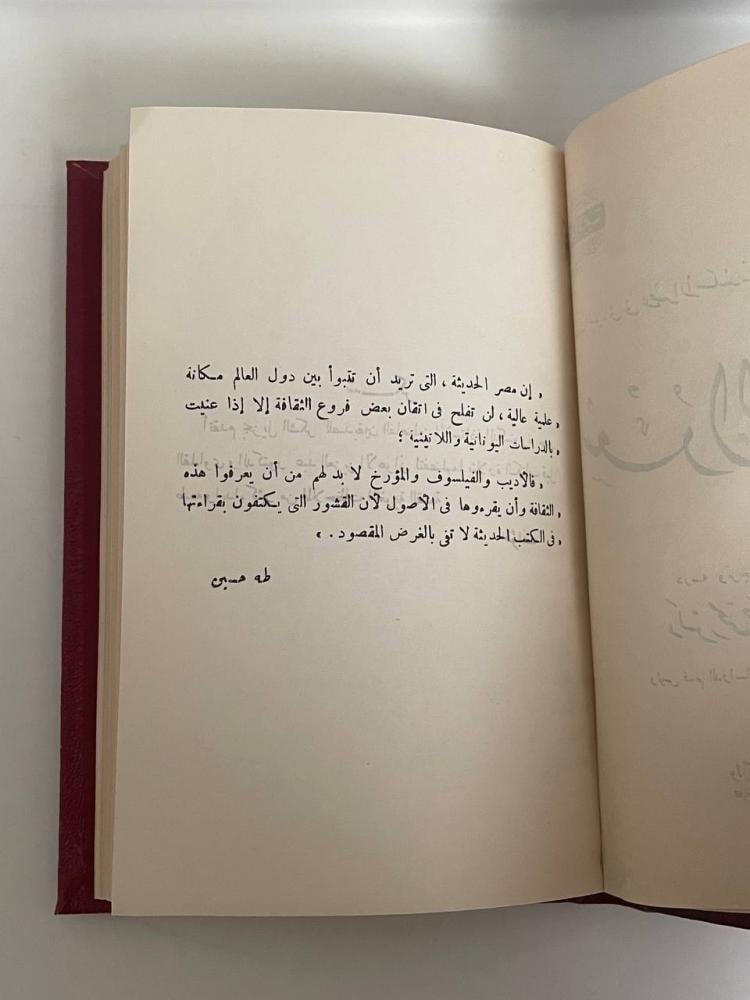 « إن مصر الحديثة ، التى تريد أن تتبوأ بين دول العالم مكانة
« علمية عالية ، لن تفلح فى اتقان بعض فروع الثقافة إلا إذا عنيت
« بالدراسات اليونانية واللاتينية ؛
« فالأديب والفيلسوف والمؤرخ لا بد لهم من أن يعرفوا هذه
« الثقافة وأن يقرءوها فى الأصول لأن القشور التى يكتفون بقراءتها
« فى الكتب الحديثة لا تفى بالغرض المقصود . »
طه حسين